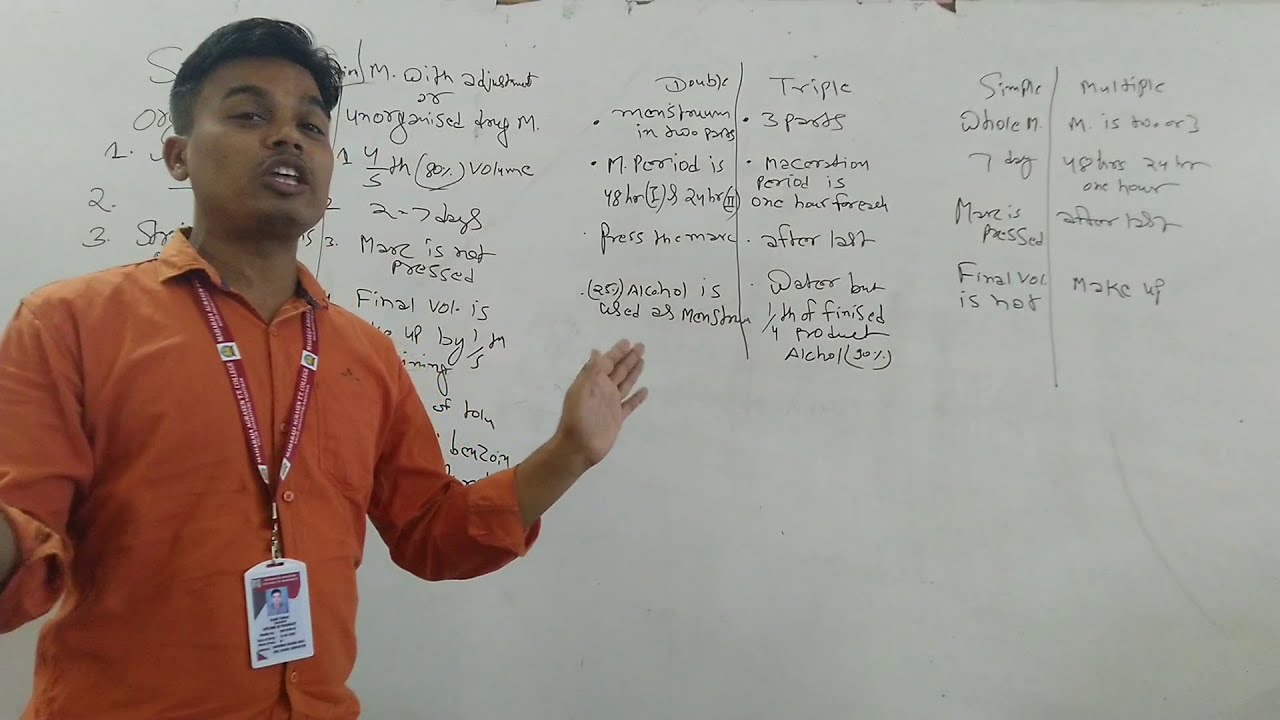 M. with adjustment
or
unorganised drug M.
1.
1 4/5 th (80%) Volume
2.
2 - 7 days
3.
3. Marc is not
pressed
Final Vol. is
up by 1/5 th
of tolu
benzoin
Double
menstruum
in two parts
• M. Period is
48 hr (I) & 24 hr (II)
• Press the marc
• (25%) Alcohol is
used as menstruu
Triple
• 3 parts
• maceration
Period is
one hour for each
• after last
• Water but
1/4 th of finised
Product
Alchol (90%)
Simple
Whole M.
7 day
Marc is
pressed
Final vol.
is not
Multiple
M. is two or 3
48 hrs 24 hr
one hour
after last
Make up
MAHARAJA AGRASEN T.T. COLLEGE
MAHARAJA AGRASEN T.T. COLLEGE